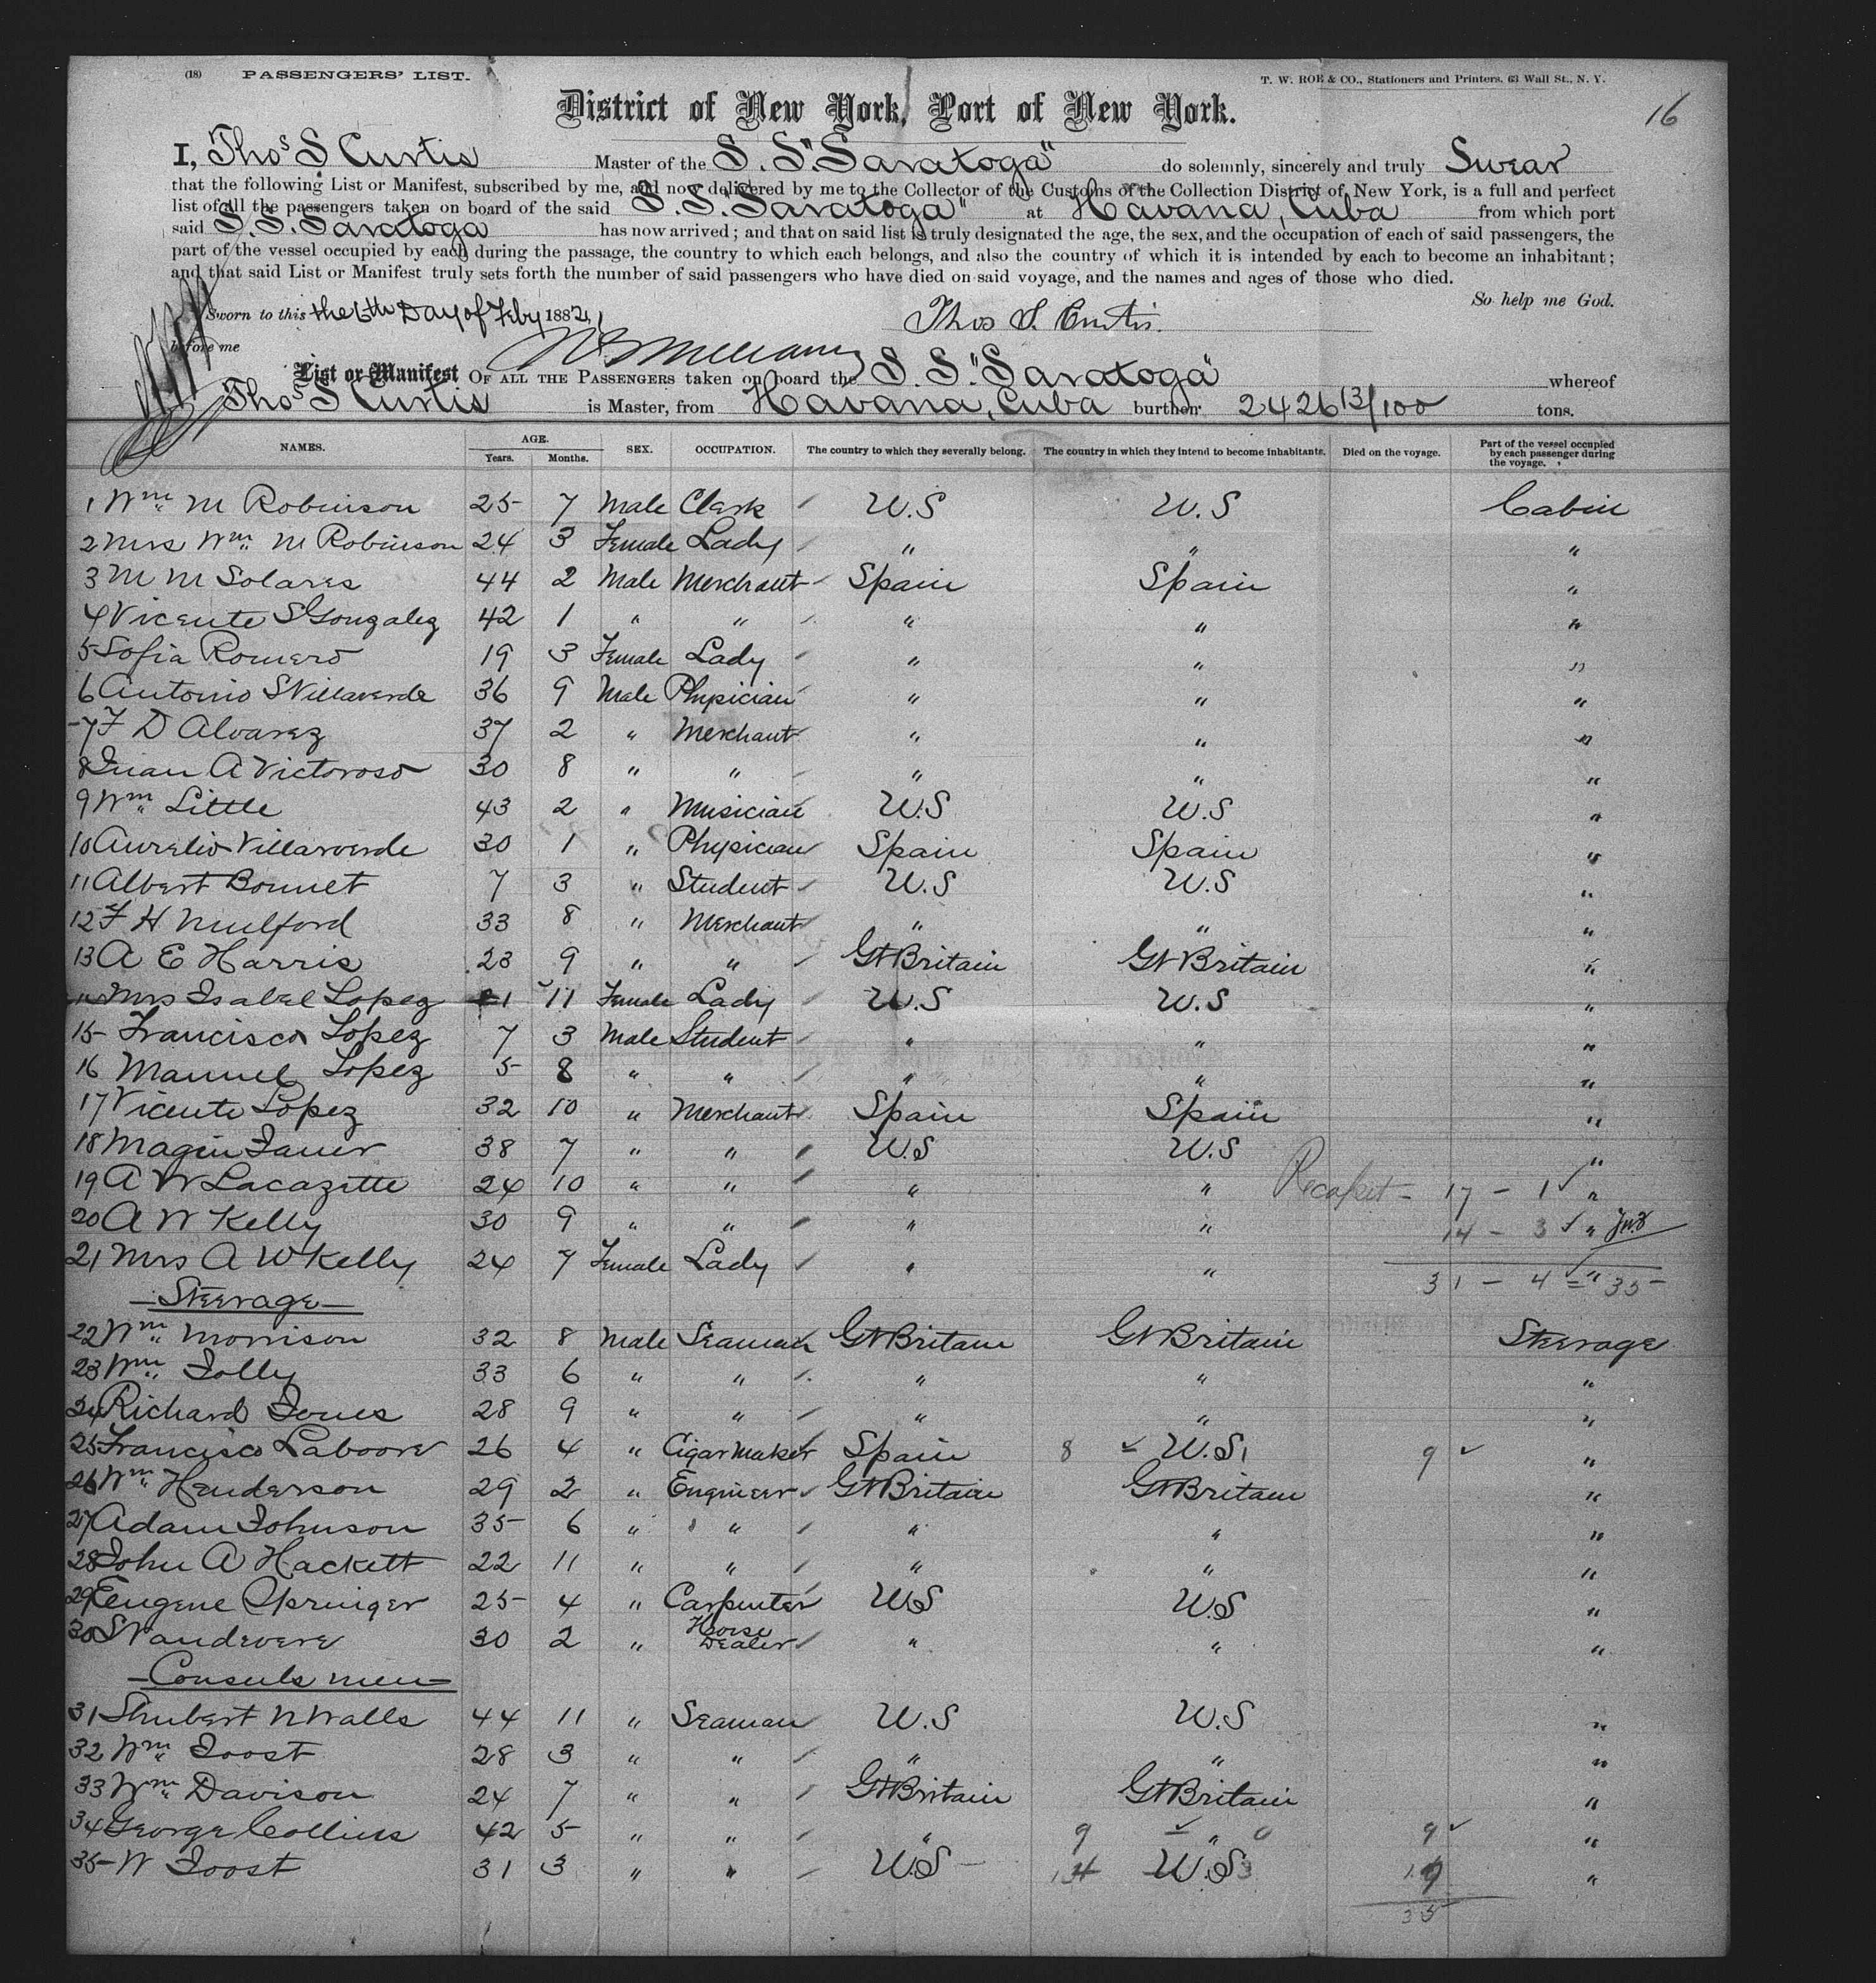 (18) PASSENGERS' LIST.
T. W. ROE & CO., Stationers and Printers, 63 Wall St., N. Y.
16
District of New York, Port of New York.
I, Thos S Curtis Master of the S. S. "Saratoga" do solemnly, sincerely and truly Swear
that the following List or Manifest, subscribed by me, and now delivered by me to the Collector of the Customs of the Collection District of New York, is a full and perfect
list of all the passengers taken on board of the said S. S. "Saratoga" at Havana, Cuba from which port
said S. S. Saratoga has now arrived; and that on said list is truly designated the age, the sex, and the occupation of each of said passengers, the
part of the vessel occupied by each during the passage, the country to which each belongs, and also the country of which it is intended by each to become an inhabitant;
and that said List or Manifest truly sets forth the number of said passengers who have died on said voyage, and the names and ages of those who died.
So help me God.
Sworn to this the 6th Day of Feby 1882,
Thos S. Curtis.
before me
List or Manifest OF ALL THE PASSENGERS taken on board the S. S. "Saratoga" whereof
Thos S Curtis is Master, from Havana, Cuba burthen 2426 13/100 tons.
NAMES. AGE. Years. Months. SEX. OCCUPATION. The country to which they severally belong. The country in which they intend to become inhabitants. Died on the voyage. Part of the vessel occupied by each passenger during the voyage.
1 Wm M Robinson 25 7 Male Clerk U.S U.S Cabin
2 Mrs Wm M Robinson 24 3 Female Lady " " "
3 M M Solares 44 2 Male Merchant Spain Spain "
4 Vicente S Gonzalez 42 1 " " " " "
5 Sofia Romero 19 3 Female Lady " " "
6 Antonio S Villaverde 36 9 Male Physician " " "
7 F D Alvarez 37 2 " Merchant " " "
8 Juan A Victoroso 30 8 " " " " "
9 Wm Little 43 2 " Musician U.S U.S "
10 Aurelio Villaverde 30 1 " Physician Spain Spain "
11 Albert Bonnet 7 3 " Student U.S U.S "
12 F H Mulford 33 8 " Merchant " " "
13 A E Harris 23 9 " " Gt Britain Gt Britain "
14 Mrs Isabel Lopez 21 11 Female Lady U.S U.S "
15 Francisco Lopez 7 3 Male Student " " "
16 Manuel Lopez 5 8 " " " " "
17 Vicente Lopez 32 10 " Merchant Spain Spain "
18 Magin Janer 38 7 " " U.S U.S "
19 A W Lacazette 24 10 " " " " 17 - 1 "
20 A W Kelly 30 9 " " " " 14 - 3 "
21 Mrs A W Kelly 24 7 Female Lady " " 31 - 4 = " 35
Steerage
22 Wm Morrison 32 8 Male Seaman Gt Britain Gt Britain Steerage
23 Wm Jolly 33 6 " " " " "
24 Richard Jones 28 9 " " " " "
25 Francisco 26 4 " Cigar Maker Spain 8 U.S, 9 "
26 Wm Henderson 29 2 " Engineer Gt Britain Gt Britain "
27 Adam Johnson 35 6 " " " " "
28 John A Hackett 22 11 " " " " "
29 Eugene Springer 25 4 " Carpenter U.S U.S "
30 S Vandevere 30 2 " Horse Dealer " " "
Consuls men
31 Shubert N Walls 44 11 " Seaman U.S U.S "
32 Wm Joost 28 3 " " " " "
33 Wm Davison 24 7 " " Gt Britain Gt Britain "
34 George Collins 42 5 " " " 9 " 9 "
35 W Joost 31 3 " " U.S U.S "
35